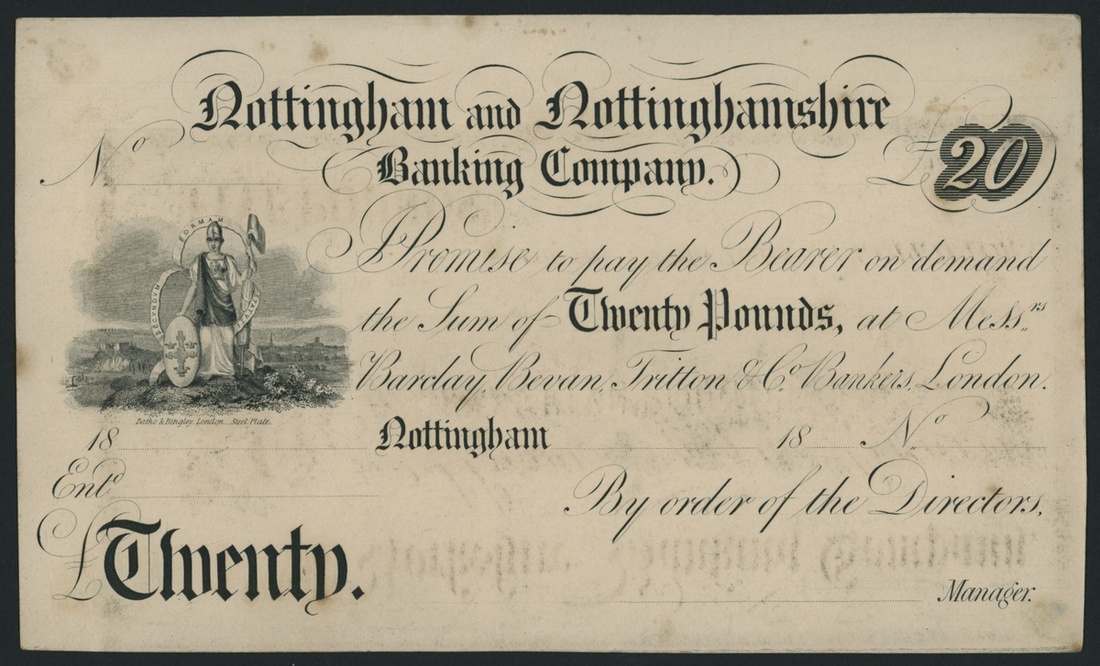 Nottingham and Nottinghamshire
Banking Company.
No
£20
SECUNDUM FORMAM
I Promise to pay the Bearer on demand
the Sum of Twenty Pounds, at Messrs
Barclay, Bevan, Tritton & Co Bankers, London.
Batho & Bingley, London. Steel Plate.
18 Nottingham 18 No
Entd
By order of the Directors,
£Twenty.
Manager.